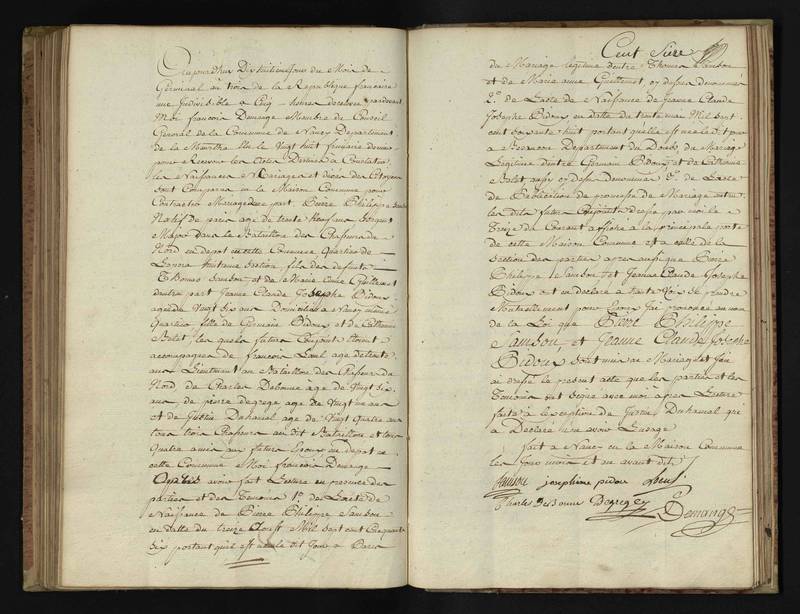 Aujourd'hui Dix huitieme Jour du Mois de
Germinal an trois de la Republique française
une Indivisible a Cinq heures de relevée pardevant
Moi françois Demange Membre du Conseil
General de la Commune de Nancy Departement
de la Meurthe Elu le Vingt huit frimaire dernier
pour Recevoir les Actes Destinés a Constater
les Naissances Mariages et décès des Citoyens
Sont Comparus en la Maison Commune pour
Contracter Mariage d'une part Pierre Philippe Sambou
Natif de paris agé de trente huit ans Sergent
Major dans le Bataillon des Chasseurs du
Nord en depot en cette Commune Quartier de
huitieme Section, fils des defunts
Thomas Sambou et de Marie Anne Guillemet
d'autre part Jeanne Claude Josephe Bidoux
agée de Vingt six ans Domiciliée a Nancy même
Quartier fille de Germain Bidoux et de Catherine
Bolet les quels futurs Conjoints étoient
accompagnés de françois Laul agé de trente
ans Lieutenant au Bataillon des Chasseurs du
Nord de Charles Debonne agé de Vingt Six
ans, de pierre degregé agé de Vingt un ans
et de Justin Duhamel agé de Vingt Quatre ans
tous trois Chasseurs au dit Bataillon et tous
Quatre amis aux futurs Epoux en depot en
cette Commune Moi françois Demange
Après avoir fait Lecture en presence des
parties et des Temoins 1.° de L'acte de
Naissance de Pierre Philippe Sambou
en datte du treize Aoust Mil Sept cent Cinquante
Six portant qu'il est né le dit Jour a Paris
Cent Seize
du Mariage légitime d'entre Thomas Sambou
et de Marie anne Guillemet, cy dessus denommés
2.° de L'acte de Naissance de Jeanne Claude
Josephe Bidoux en datte du trente mai Mil Sept
cent Soixante huit portant qu'elle est née le dit jour
a Besancon Departement du Doubs du Mariage
Légitime d'entre Germain Bidoux et de Catherine
Bolet aussy cy dessus denommés 3.° de L'acte
de Publication de promesse de Mariage entre
les dits futurs Conjoints dressé par moi le
Treize du Courant affiché a la principale porte
de cette Maison Commune et a celle de la
Section des parties après aussi que Pierre
Philippe Sambou et Jeanne Claude Josephe
Bidoux ont declaré a haute Voix Se prendre
Mutuellement pour Epoux J'ai prononcé au nom
de la Loi que Pierre Philippe
Sambou, et Jeanne Claude Josephe
Bidoux sont unis en Mariage et J'ai
dressé le présent acte que les parties et les
Temoins ont Signé avec moi après Lecture
faite à l'exception de Justin Duhamel qui
a Declaré n'en avoir L'usage
fait a Nancy en la Maison Commune
les Jour mois et an avant dits
Sambou josephine pidoux
Charles Desbonne Degregez Demange